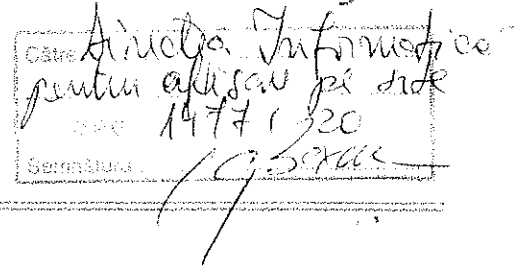 Către Direcția Informatică
pentru afișare pe site
1477 / 20
Semnătura